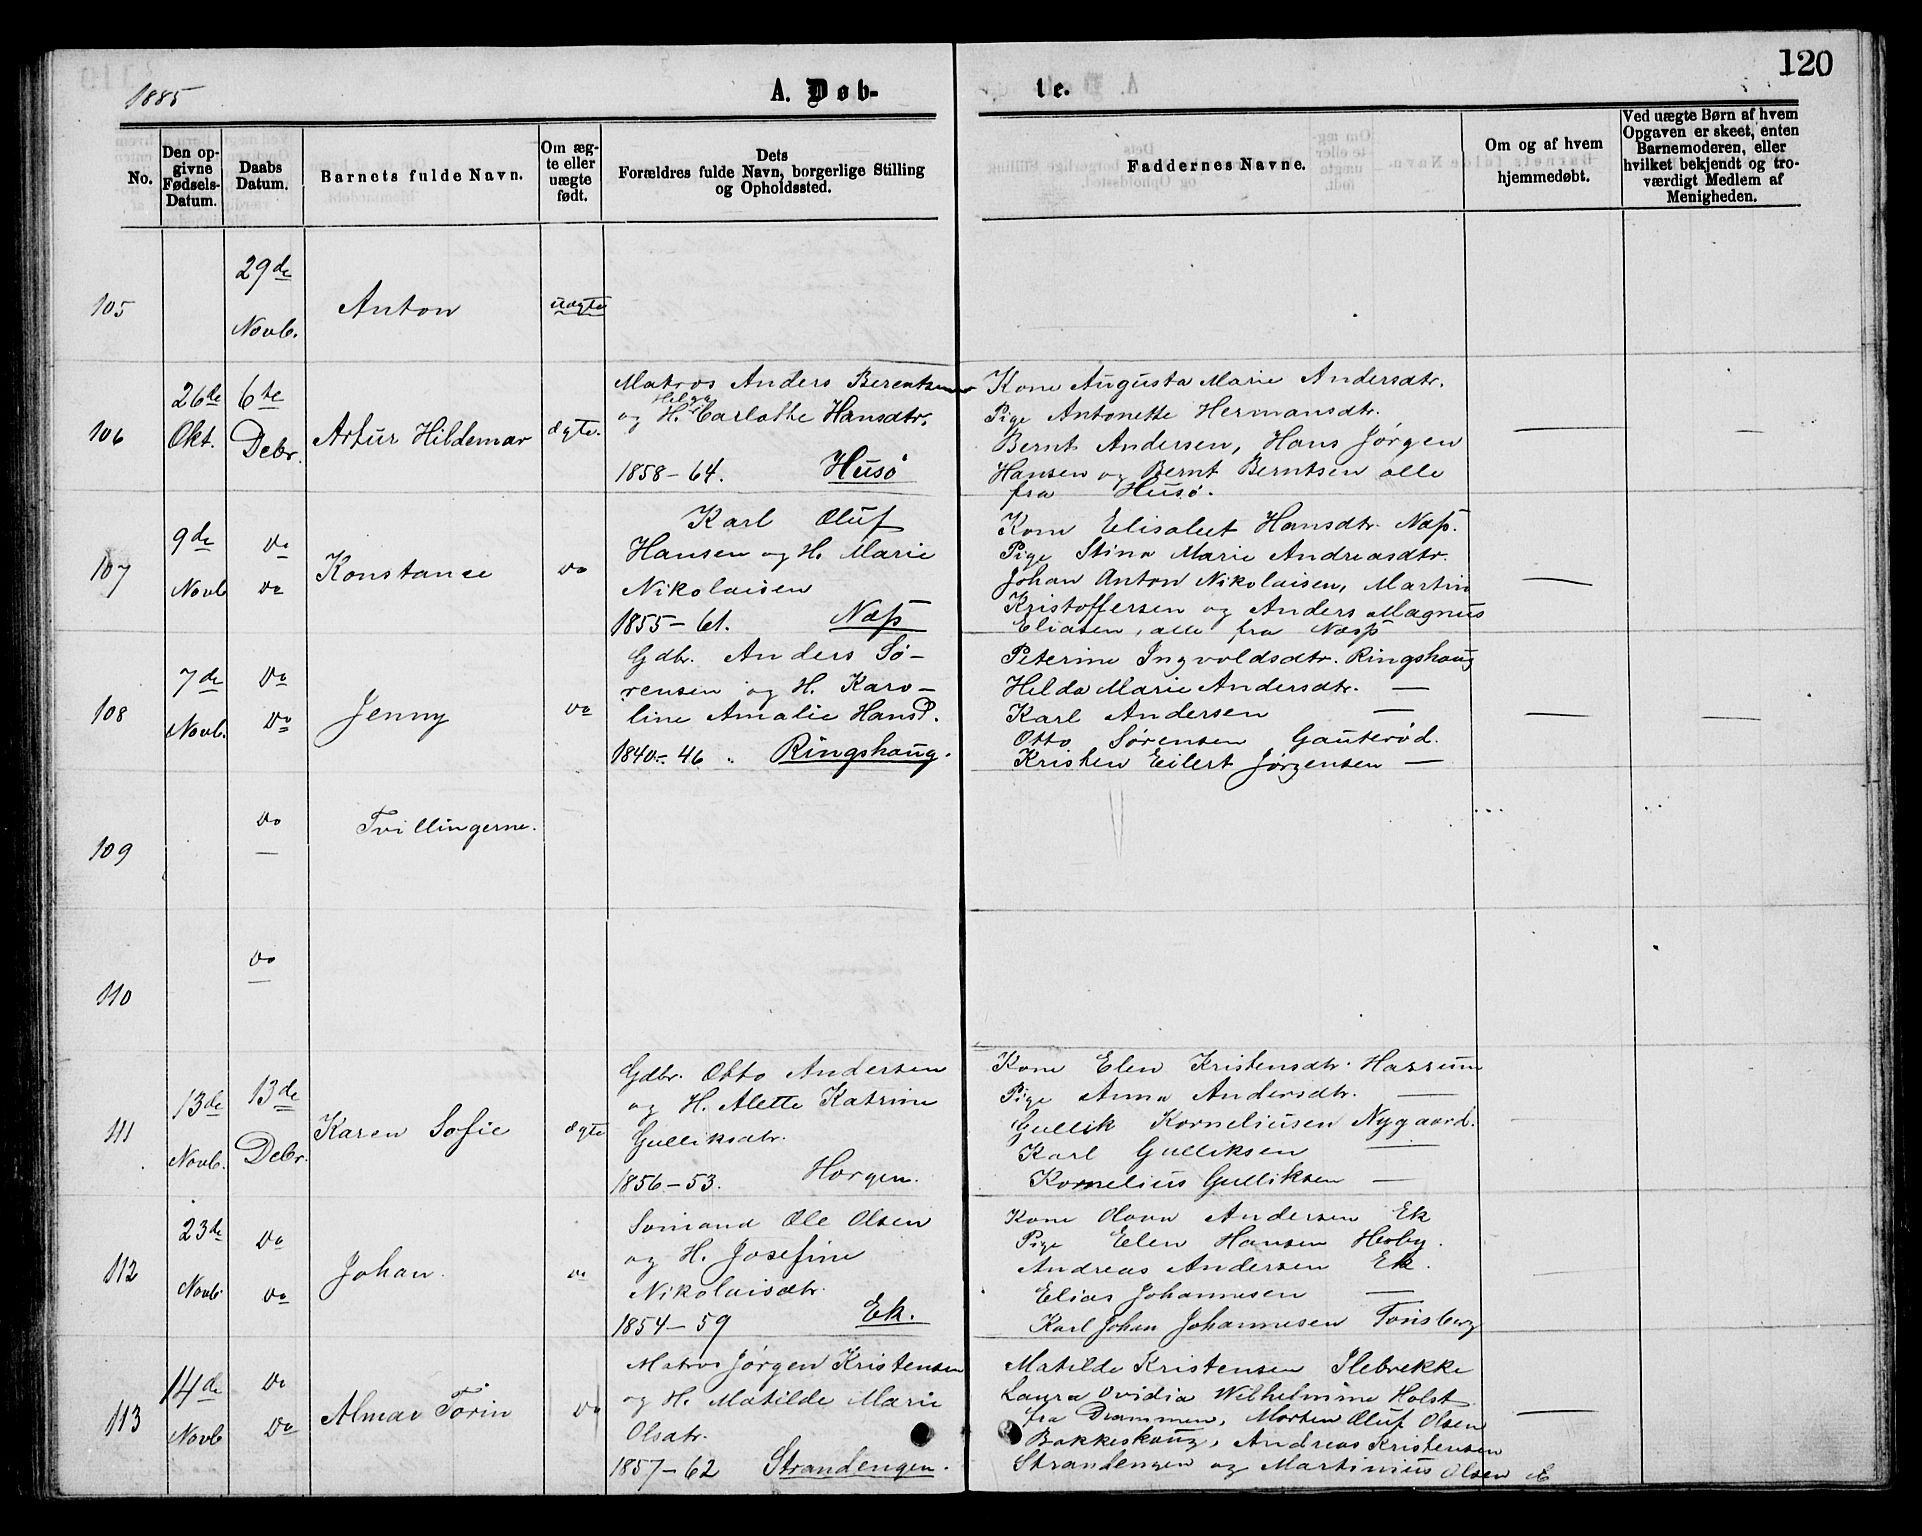 120
1885
A. Døb-
te.
No.
Den op-
givne
Fødsels-
Datum.
Daabs
Datum.
Barnets fulde Navn.
Om æg-
te eller
uægte
født.
Dets
Forældres fulde Navn, borgerlige Stilling
og Opholdssted.
Faddernes Navne.
Om og af hvem
hjemmedøbt.
Ved uægte Børn af hvem
Opgaven er skeet, enten
Barnemoderen, eller
hvilket bekjendt og tro-
værdigt Medlem af
Menigheden.
105
29de
Novb.
Anton
uægte
106
26de
Okt.
6te
Debr.
Artur Hildemar
ægte.
Matros Anders Berentsen
Helga
og H. Carlothe Hansdtr.
1858-64. Husö
Kone Augusta Marie Andersdtr.
Pige Antonette Hermansdtr.
Bernt Andersen, Hans Jørgen
Hansen og Bernt Berntsen alle
fra Husö.
107
9de
Novb
do
do
Konstanse
do
Karl Oluf
Hansen og H. Marie
Nikolaisen
1855-61. Næss
Kone Elisabet Hansdtr. Næss.
Pige Stina Marie Andreasdtr.
Johan Anton Nikolaisen, Martin
Kristoffersen og Anders Magnus
Eliasen, alle fra Næss
108
7de
Novb.
do
do
Jenny
do
Gdbr. Anders Sö-
rensen og H. Karo-
line Amalie Hansd.
1840-46. Ringshaug.
Peterine Ingvoldsdtr. Ringshaug
Hilda Marie Andersdtr. —
Karl Andersen —
Otto Sørensen Gauterød.
Kristen Eilert Jørgensen —
109
do
—
Tvillingerne.
110
do
—
111
13de
Novb.
13de
Debr.
Karen Sofie
ægte
Gdbr. Otto Andersen
og H. Alette Katrine
Gulliksdtr.
1856-53. Horgen.
Kone Elen Kristensdtr. Hassum
Pige Anna Andersdtr. —
Gullik Korneliusen Nygaard.
Karl Gulliksen —
Kornelius Gulliksen —
112
23de
Novb.
do
do
Johan.
do
Sömand Ole Olsen
og H. Josefine
Nikolaisdtr.
1854-59 Ek.
Kone Olava Andersen Ek
Pige Elen Hansen
Andreas Andersen Ek.
Elias Johannesen —
Karl Johan Johannesen Tönsberg
113
14de
Novb
do
do
Almar Torin
do
Matros Jørgen Kristensen
og H. Matilde Marie
Olsdtr.
1857-62 Strandengen.
Matilde Kristensen Ilebrekke
Laura Ovidia Wilhelmine Holst
fra Drammen, Morten Oluf Olsen
Bakkeskaug, Andreas Kristensen
Strandengen og Martinius Olsen